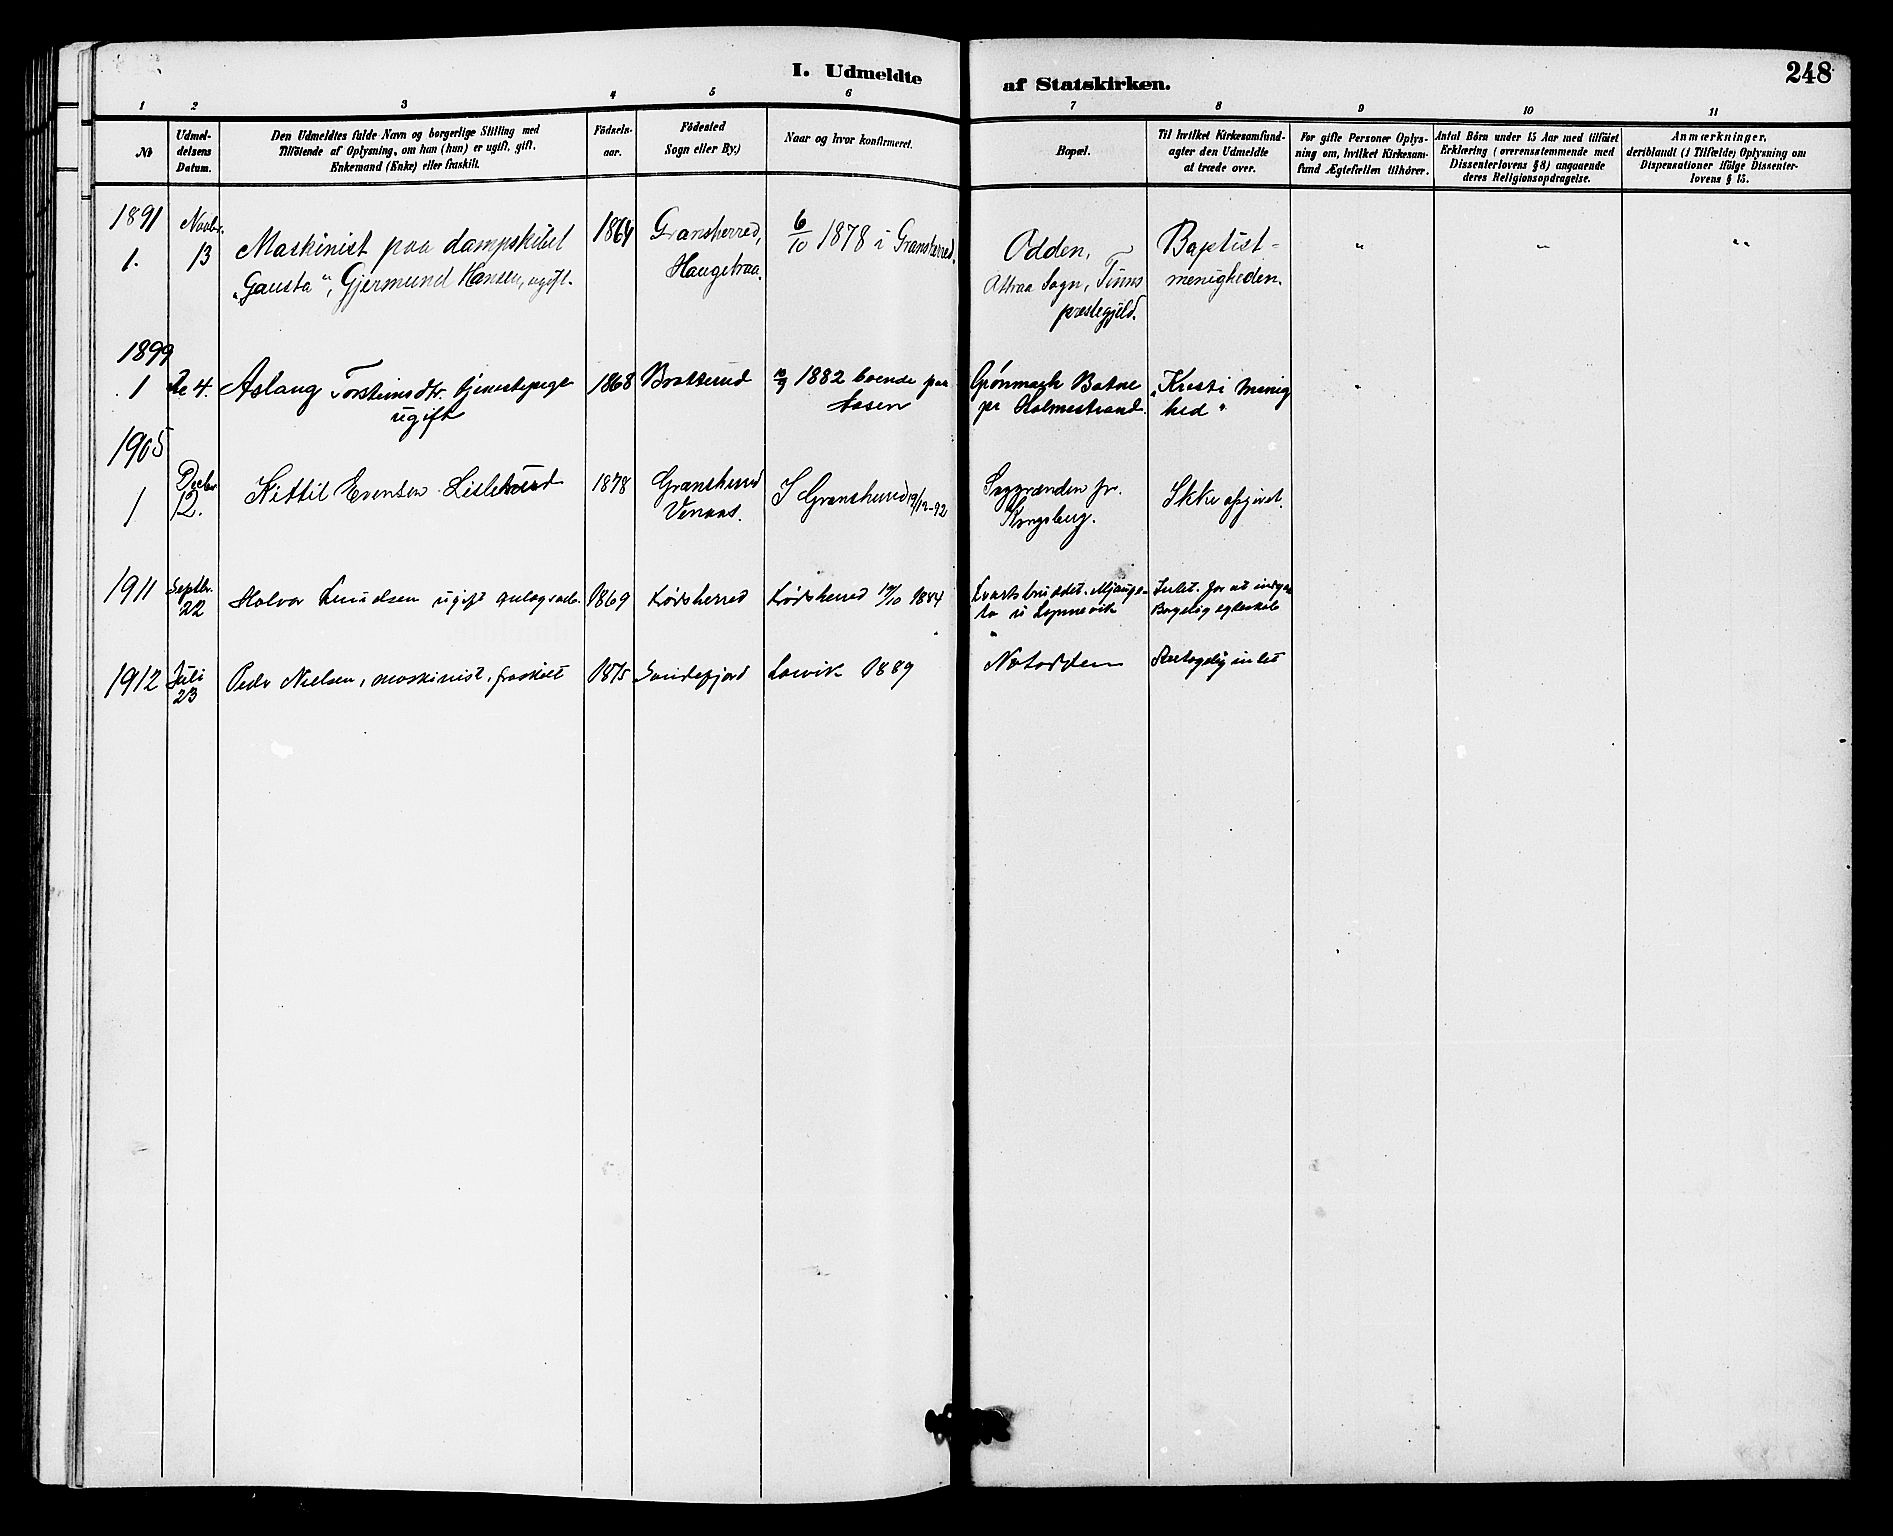 I. Udmeldte af Statskirken.
248
1 2 3 4 5 6 7 8 9 10 11
№
Udmeldelsens Datum.
Den Udmeldtes fulde Navn og borgerlige Stilling med
Tilföiende af Oplysning, om han (hun) er ugift, gift,
Enkemand (Enke) eller fraskilt.
Födselsaar.
Födested
Sogn eller By.)
Naar og hvor konfirmeret.
Bopæl.
Til hvilket Kirkesamfund-
agter den Udmeldte
at træde over.
For gifte Personer Oplys-
ning om, hvilket Kirkesam-
fund Ægtefællen tilhörer.
Antal Börn under 15 Aar med tilföiet
Erklæring (overensstemmende med
Dissenterlovens § 8) angaaende
deres Religionsopdragelse.
Anmærkninger,
deriblandt (i Tilfælde) Oplysning om
Dispensationer ifölge Dissenter-
lovens § 15.
1891
1.
Novbr.
13
Maskinist paa dampskibet
"Gausta", Gjermund Hansen, ugift.
1864
Gransherred,
Haugetraa.
6/10 1878 i Gransherred.
Odden,
Attraa Sogn, Tinns
præstegjeld.
Baptist-
menigheden.
" " "
1899
1
De 4.
Aslaug Torsteinsdtr. tjenestepige
ugift
1868
Bratterud
1882 boende paa
Aasen
Grönmark Botne
pr Holmestrand.
"Kristi Menig
hed"
"
1905
1
Decbr
12.
Kittil Evensen Lislehærd
1878
Gransherred
Venaas.
I Gransherred -92
Jaggrænden pr.
Kongsberg.
Ikke opgivet.
1911
Septbr.
22
Halvor Knudsen ugift anlagsarb.
1869
Lørdsherred 1884
Intet. for at indgaa
Borgelig egteskab
1912
Juli
23
Peder Nielsen, maskinist, fraskilt
1875
Sandefjord
Larvik 1889
Notodden
intet